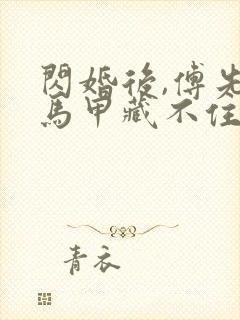 閃婚後,傅先
馬甲藏不住
青衣